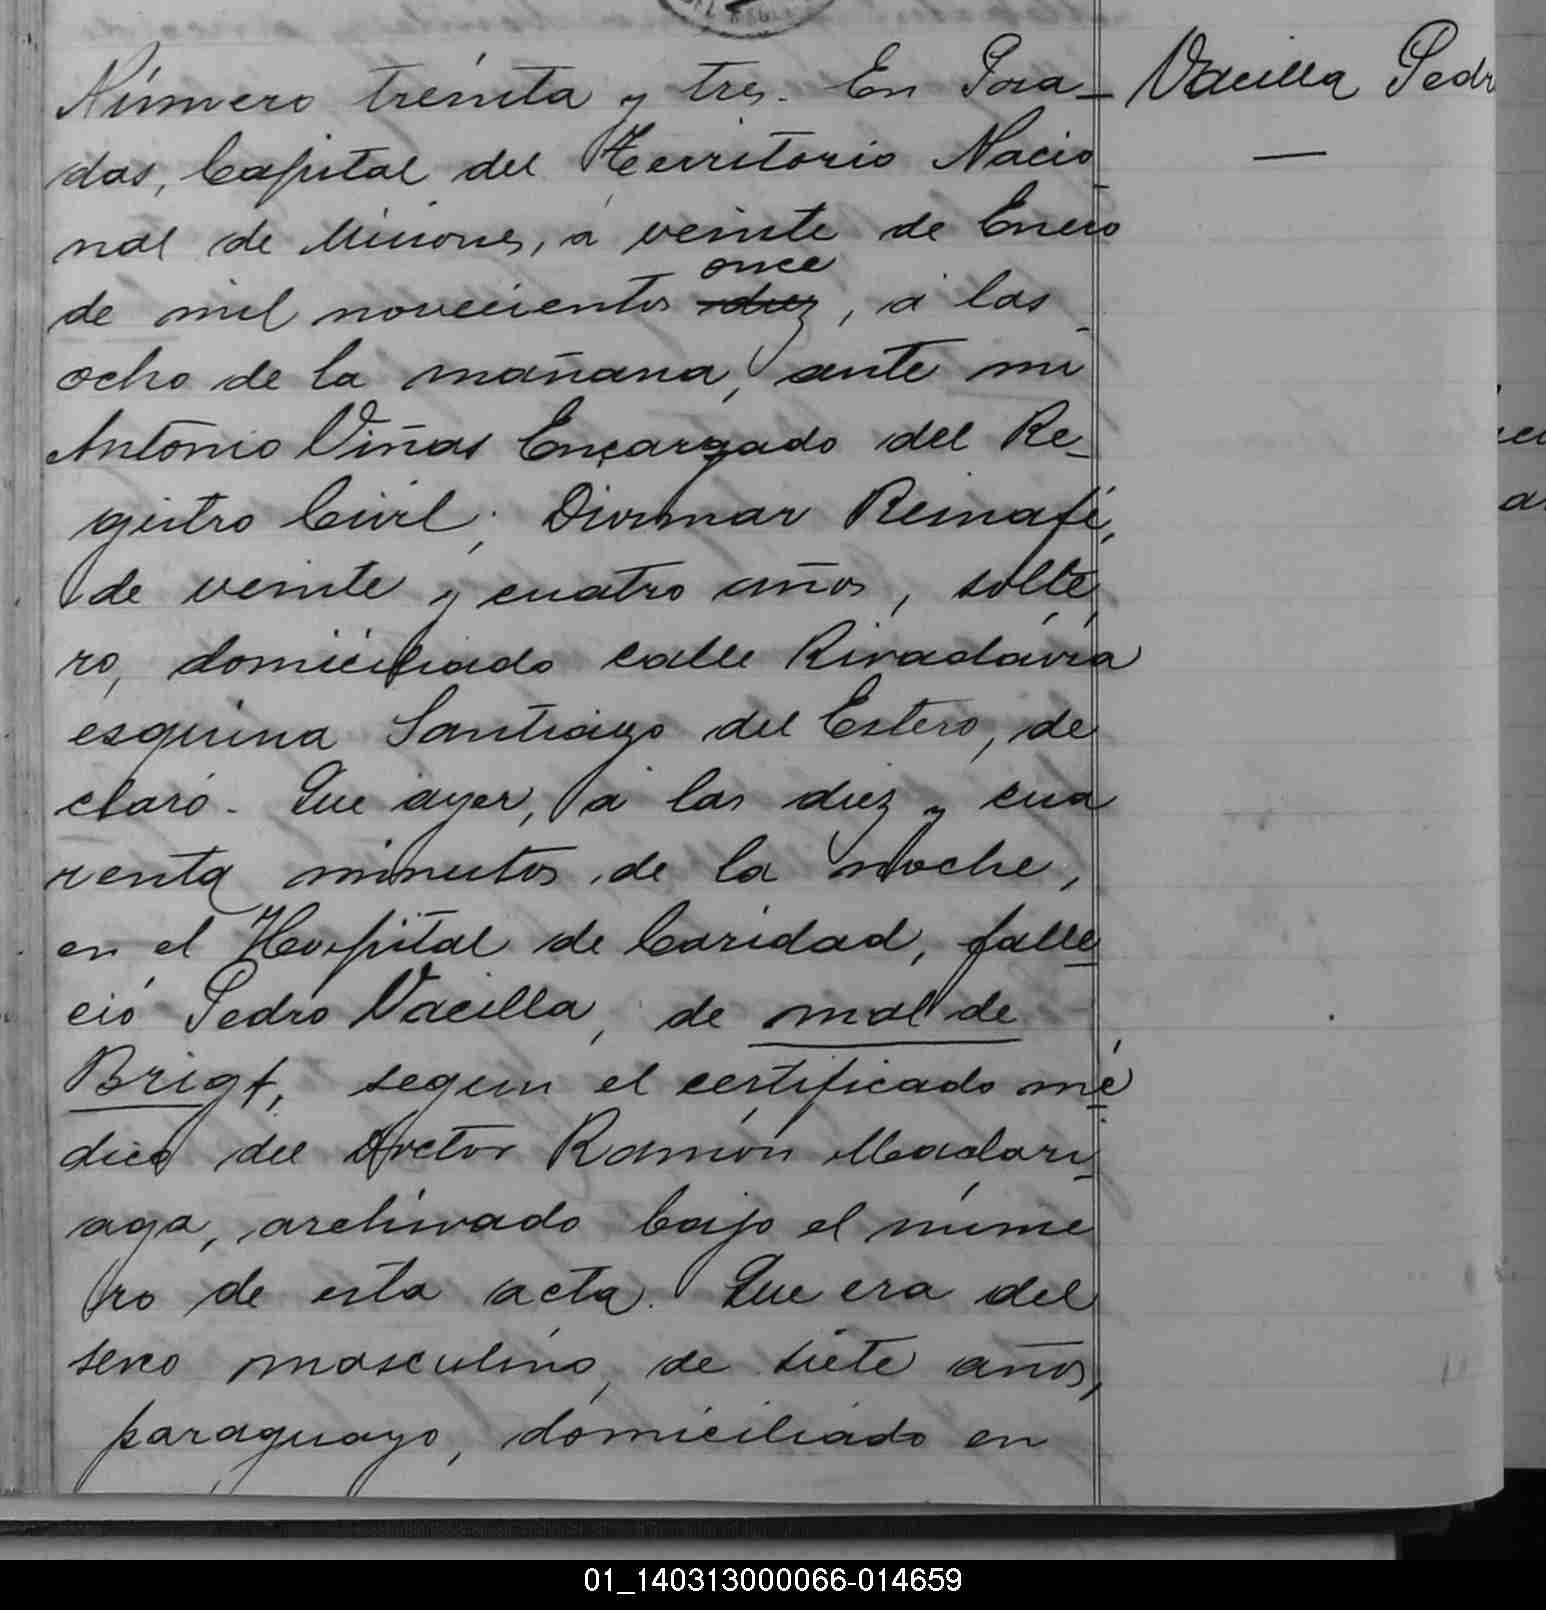 Número treinta y tres. En Posa- Vacilla Pedr
das, Capital del Territorio Nacio
nal de Misiones, a veinte de Enero
once
de mil novecientos diez, á las
ocho de la mañana, ante mi
Antonio Viñas Encargado del Re-
gistro Civil; Diosmar Reinafé,
de veinte y cuatro años, solte
ro, domiciliado calle Rivadavia
esquina Santiago del Estero, de
claró. Que ayer, á las diez y cua
renta minutos de la noche,
en el Hospital de Caridad, falle
ció Pedro Vacilla, de mal de
Brigt, segun el certificado mé
dico del Doctor Ramón Madari
aga, archivado bajo el núme
ro de esta acta. Que era del
sexo masculino, de siete años,
paraguayo, domiciliado en
01_140313000066-014659